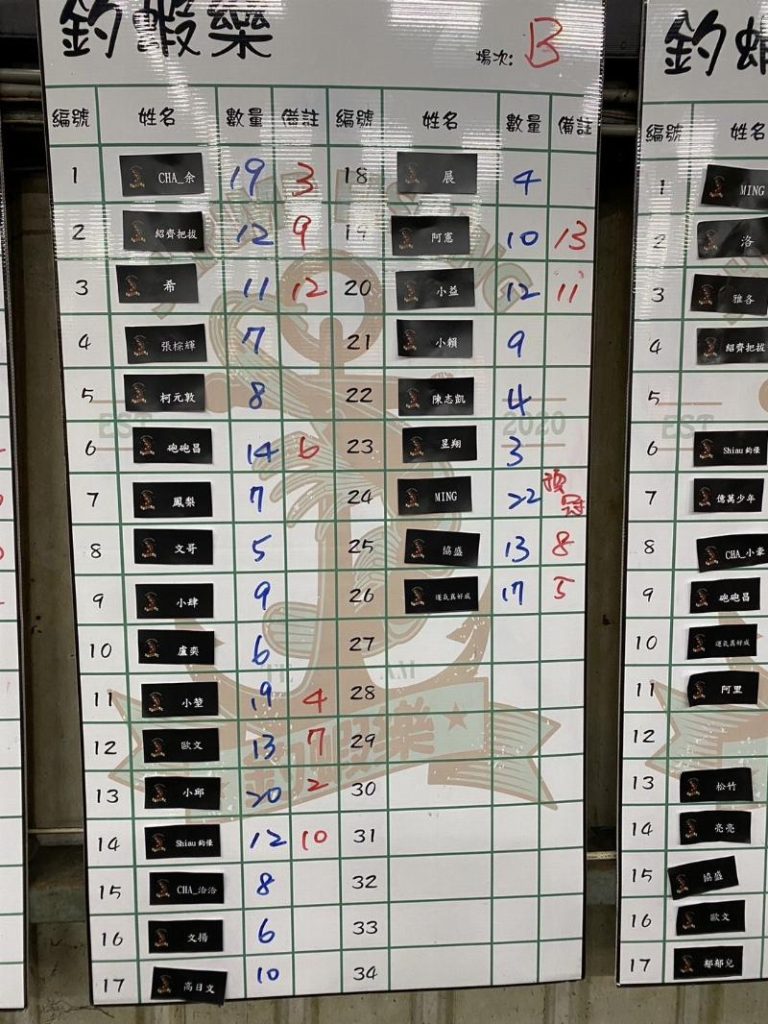 釣蝦樂
場次: B
編號 姓名 數量 備註 編號 姓名 數量 備註
1 CHA_余 19 3 18 晨 4
2 紹齊把拔 12 9 19 阿憲 10 13
3 希 11 12 20 小益 12 11
4 張棕輝 7 21 小賴 9
5 柯元敦 8 22 陳志凱 4
6 砲砲昌 14 6 23 昱翔 3
7 鳳梨 7 24 MING 22 預冠
8 文哥 5 25 協盛 13 8
9 小肆 9 26 運氣真好成 17 5
10 盧奕 6 27
11 小堃 19 4 28
12 歐文 13 7 29
13 小邱 20 2 30
14 Shiau 12 10 31
15 CHA_洽洽 8 32
16 文揚 6 33
17 高日文 10 34
EST 2020
釣蝦樂
釣
編號 姓名
1 MING
2 洛
3 雅各
4 紹齊把拔
5
6 Shiau
7 億萬少年
8 CHA_小
9 砲砲昌
10 運氣真好成
11 阿里
12
13 松竹
14 亮亮
15 協盛
16 歐文
17 鄒鄒兒
EST